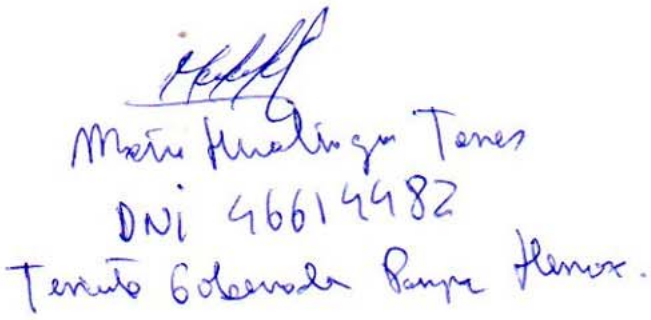 Hualinga Torres
DNI 46614482
Teniente Gobernador Pampa Hermosa.